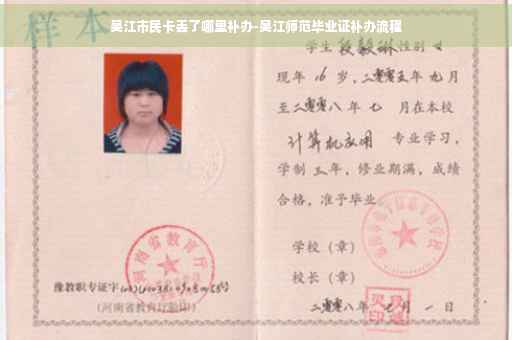 吴江市民卡丢了哪里补办-吴江师范毕业证补办流程
样本
学生 段毅琳 性别 女
现年 16 岁，二零零五年 九 月
至二零零八年 七 月在本校
计算机应用 专业学习，
学制 三 年，修业期满，成绩
合格，准予毕业。
学校（章）
校长（章）
二零零八年 七 月 一 日
河南省教育厅
豫教职专证字
（河南省教育厅验印）